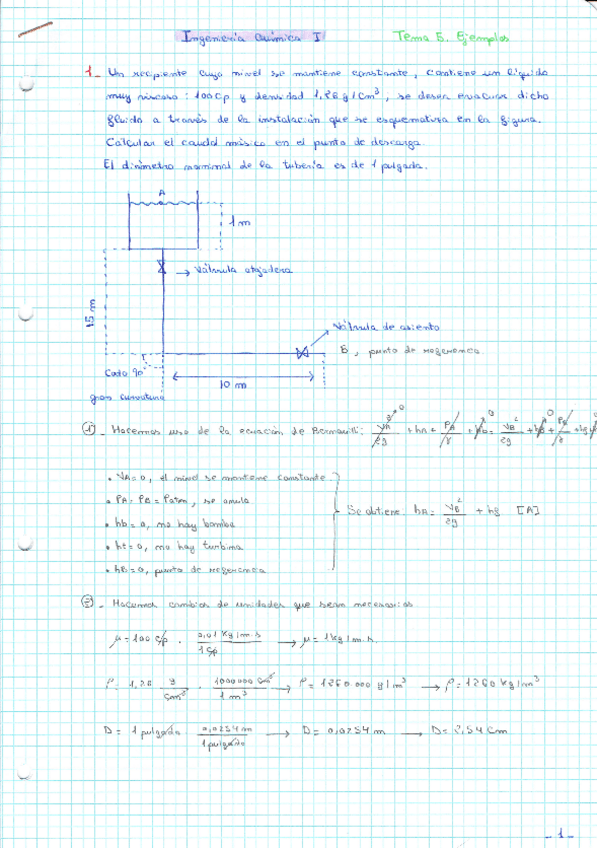 Ingeniería Química I Tema 5. Ejemplos
1_ Un recipiente cuyo nivel se mantiene constante, contiene un líquido
muy viscoso: 100cp y densidad 1,26 g/cm³, se desea evacuar dicho
fluido a través de la instalación que se esquematiza en la figura.
Calcular el caudal másico en el punto de descarga.
El diámetro nominal de la tubería es de 1 pulgada.
A
1 m
Válvula atajadera
15 m
Válvula de asiento
B, punto de referencia
Codo 90°
10 m
gran curvatura
1_ Hacemos uso de la ecuación de Bernouilli: VA²/2g + hA + PA/γ + hb = VB²/2g + hB + PB/γ + hf
• VA=0, el nivel se mantiene constante
• PA=PB=Patm, se anula
• hb=0, no hay bomba
• ht=0, no hay turbina
• hB=0, punto de referencia
Se obtiene: hA = VB²/2g + hf [A]
2_ Hacemos cambios de unidades que sean necesarios
μ=100 cp · 0,01 kg/m·s / 1 cp → μ=1kg/m·s
ρ= 1,26 g/cm³ · 1000000 cm³/1 m³ → ρ=1260 000 g/m³ → ρ=1260 kg/m³
D= 1 pulgada · 0,0254 m/1 pulgada → D=0,0254 m → D=2,54 cm
_1_